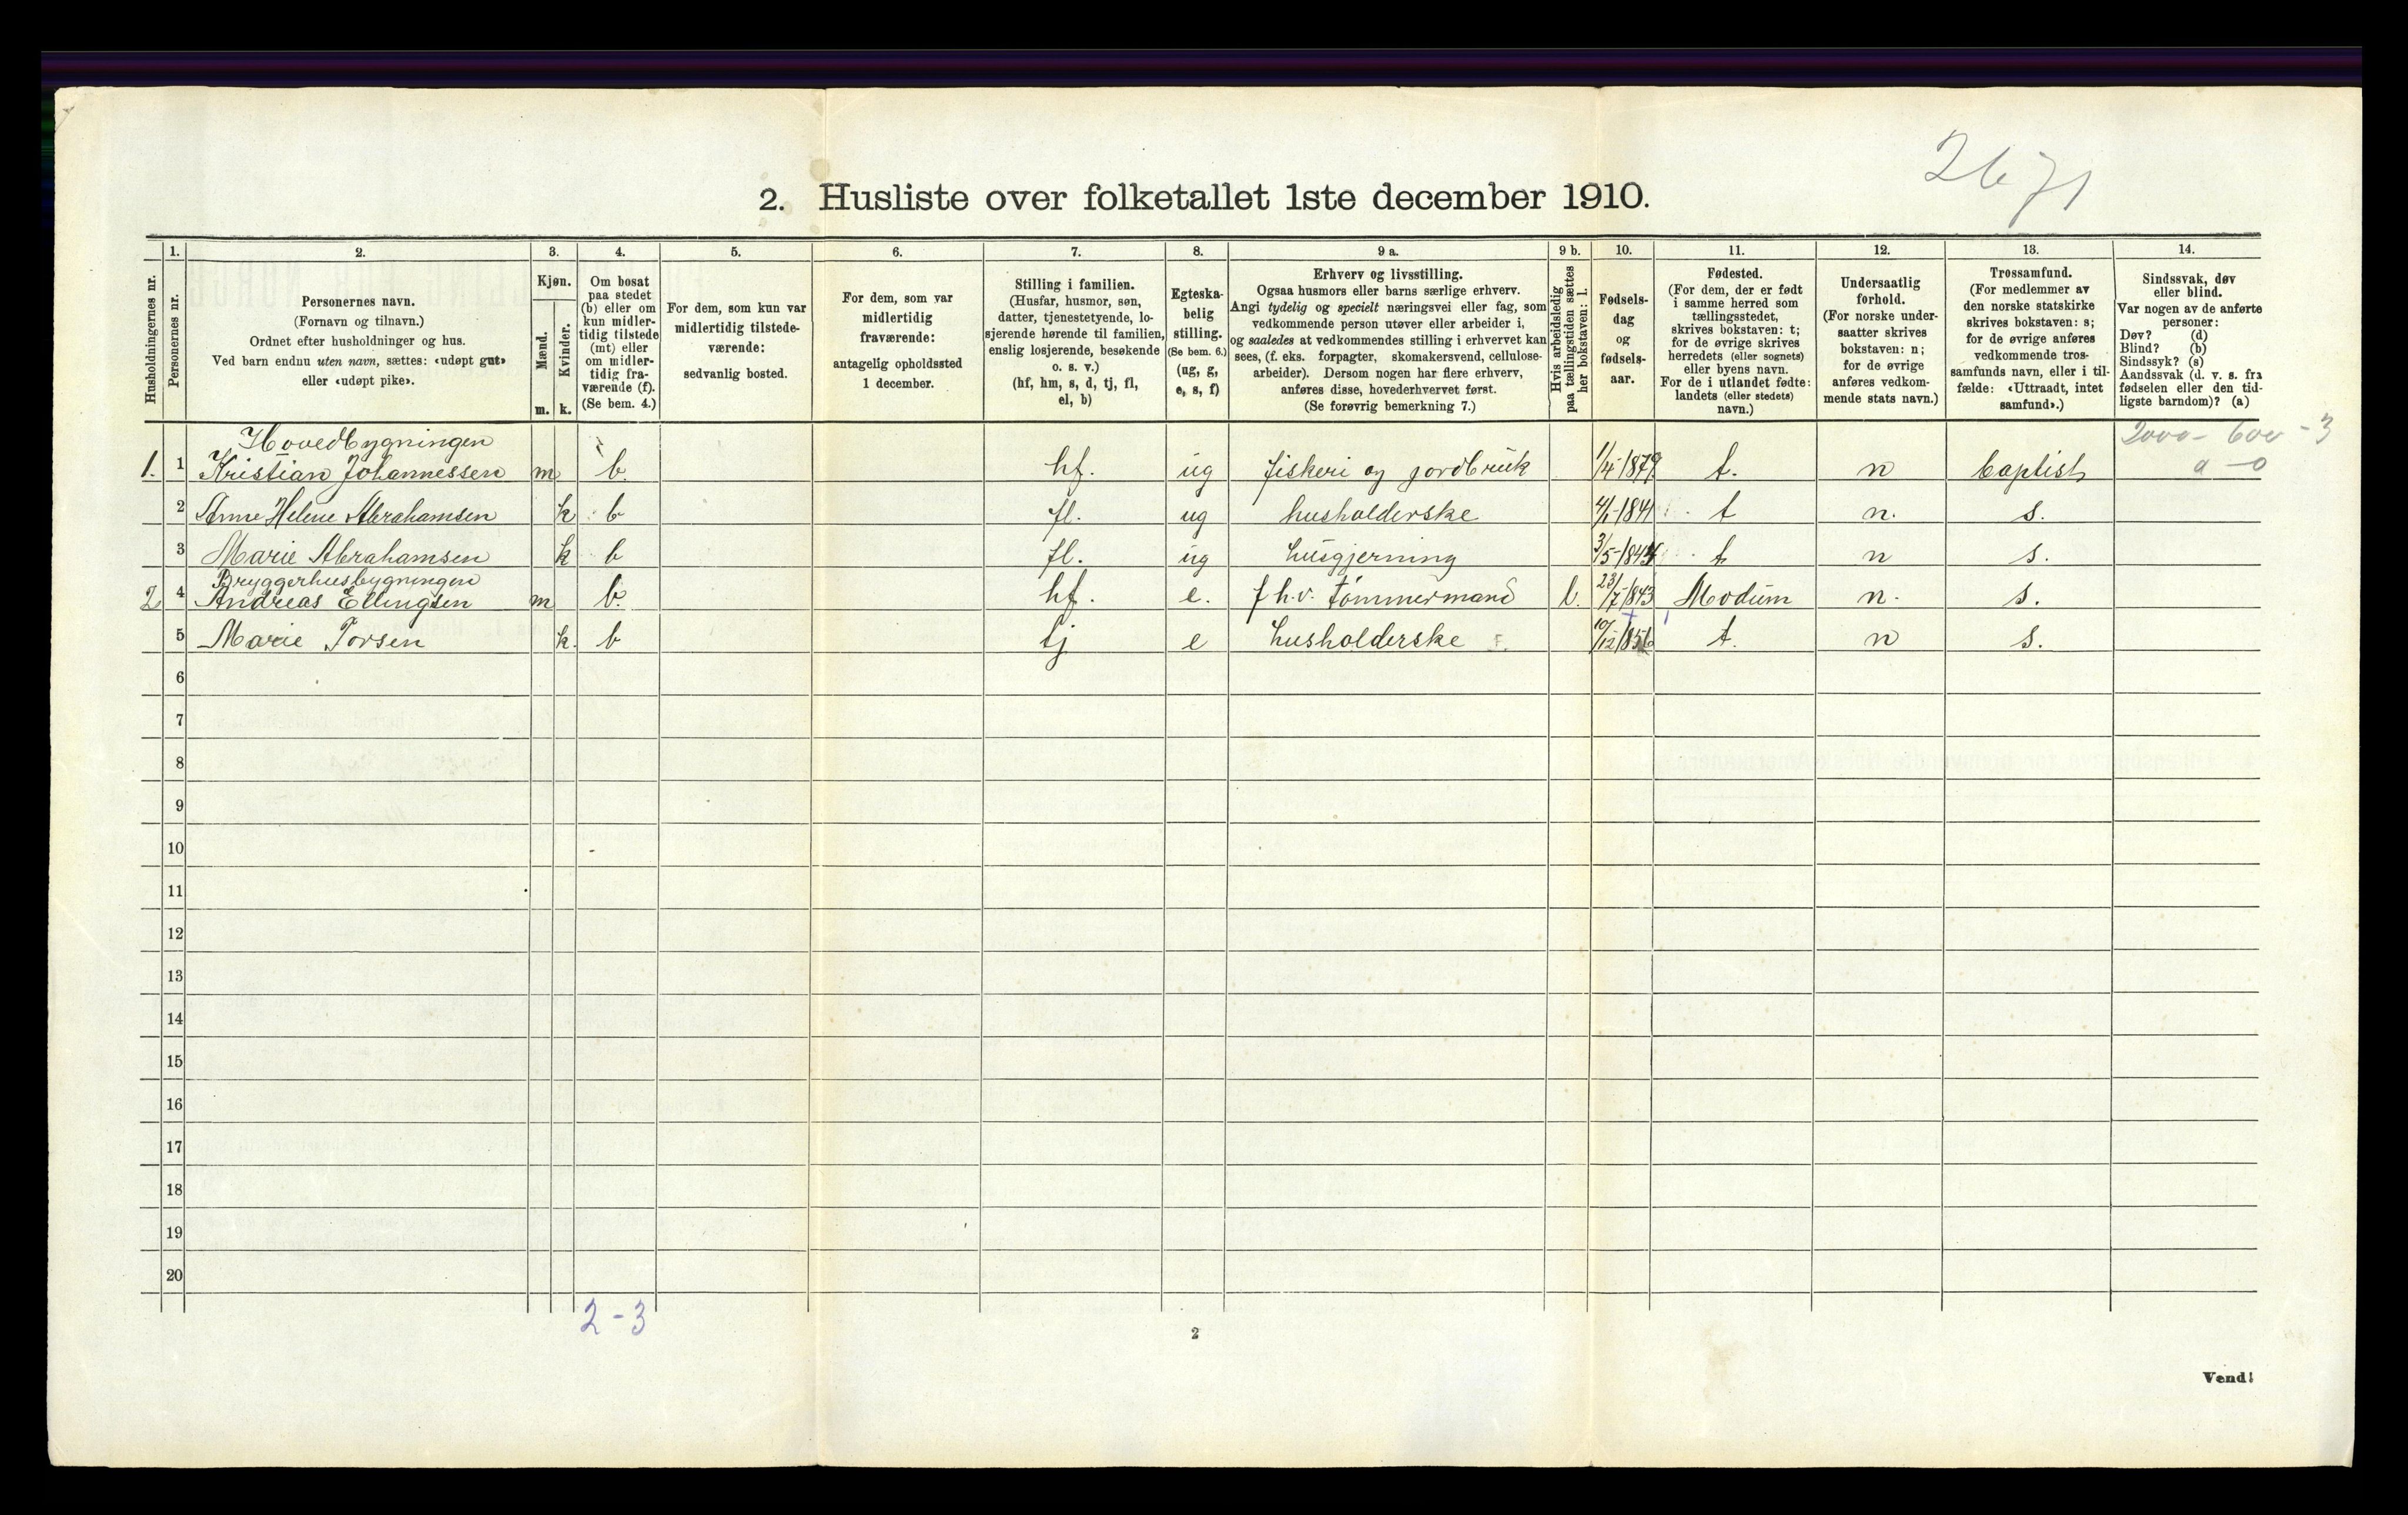 2671
2. Husliste over folketallet 1ste december 1910.
1. 2. 3. 4. 5. 6. 7. 8. 9 a. 9 b. 10. 11. 12. 13. 14.
Husholdningernes nr.
Personernes nr.
Personernes navn.
(Fornavn og tilnavn.)
Ordnet efter husholdninger og hus.
Ved barn endnu uten navn, sættes: «udøpt gut»
eller «udøpt pike».
Kjøn.
Mænd.
Kvinder.
m. k.
Om bosat
paa stedet
(b) eller om
kun midler-
tidig tilstede
(mt) eller
om midler-
tidig fra-
værende (f).
(Se bem. 4.)
For dem, som kun var
midlertidig tilstede-
værende:
sedvanlig bosted.
For dem, som var
midlertidig
fraværende:
antagelig opholdssted
1 december.
Stilling i familien.
(Husfar, husmor, søn,
datter, tjenestetyende, lo-
sjerende hørende til familien,
enslig losjerende, besøkende
o. s. v.)
(hf, hm, s, d, tj, fl,
el, b)
Egteska-
belig
stilling.
(Se bem. 6.)
(ug, g,
e, s, f)
Erhverv og livsstilling.
Ogsaa husmors eller barns særlige erhverv.
Angi tydelig og specielt næringsvei eller fag, som
vedkommende person utøver eller arbeider i,
og saaledes at vedkommendes stilling i erhvervet kan
sees, (f. eks. forpagter, skomakersvend, cellulose-
arbeider). Dersom nogen har flere erhverv,
anføres disse, hovederhvervet først.
(Se forøvrig bemerkning 7.)
Hvis arbeidsledig
paa tællingstiden sættes
her bokstaven: l.
Fødsels-
dag
og
fødsels-
aar.
Fødested.
(For dem, der er født
i samme herred som
tællingsstedet,
skrives bokstaven: t;
for de øvrige skrives
herredets (eller sognets)
eller byens navn.
For de i utlandet fødte:
landets (eller stedets)
navn.)
Undersaatlig
forhold.
(For norske under-
saatter skrives
bokstaven: n;
for de øvrige
anføres vedkom-
mende stats navn.)
Trossamfund.
(For medlemmer av
den norske statskirke
skrives bokstaven: s;
for de øvrige anføres
vedkommende tros-
samfunds navn, eller i til-
fælde: «Uttraadt, intet
samfund».)
Sindssvak, døv
eller blind.
Var nogen av de anførte
personer:
Døv? (d)
Blind? (b)
Sindssyk? (s)
Aandssvak (d. v. s. fra
fødselen eller den tid-
ligste barndom)? (a)
Hovedbygningen 2000 - 600 - 3
1. 1 Kristian Johannessen m b. hf. ug fiskeri og jordbruk 1/4-1879 t. n baptist a - 0
2 Anne Helene Abrahamsen k b fl. ug husholderske 4/1-1841 t n. s.
3 Marie Abrahamsen k b fl. ug husgjerning 3/5-1844 t n s.
Bryggerhusbygningen
2 4 Andreas Ellingsen m b. hf. e. f.h.v. tømmermand l. 23/7-1843 Modum n. s.
5 Marie Torsen k. b tj e husholderske 10/12 1856 t. n s.
6
7
8
9
10
11
12
13
14
15
16
17
18
19
20
2 - 3
2
Vend!